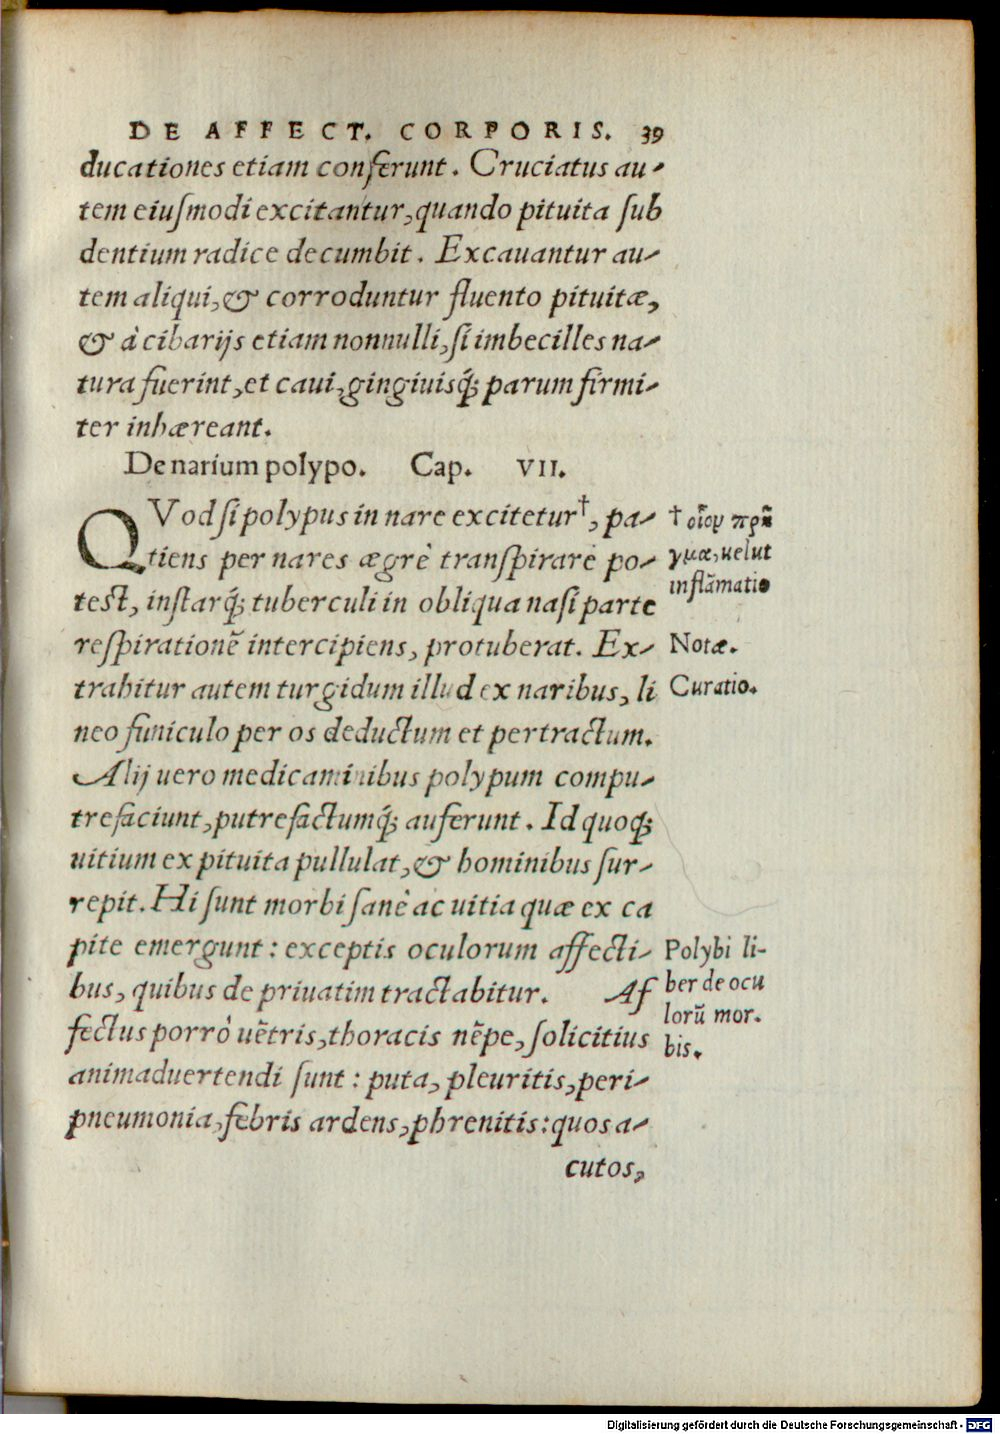 DE AFFECT. CORPORIS. 39
ducationes etiam conferunt. Cruciatus au-
tem eiuſmodi excitantur, quando pituita ſub
dentium radice decumbit. Excauantur au-
tem aliqui, & corroduntur fluento pituitæ,
& à cibarijs etiam nonnulli, ſi imbecilles na-
tura fuerint, et caui, gingiuisq́; parum firmi-
ter inhæreant.
De narium polypo. Cap. VII.
QVod ſi polypus in nare excitetur†, pa-
tiens per nares ægrè tranſpirare po-
test, inſtarq́; tuberculi in obliqua naſi parte
reſpirationẽ intercipiens, protuberat. Ex-
trahitur autem turgidum illud ex naribus, li
neo funiculo per os deductum et pertractum.
Alij uero medicaminibus polypum compu-
trefaciunt, putrefactumq́; auferunt. Id quoq́;
uitium ex pituita pullulat, & hominibus ſur-
repit. Hi ſunt morbi ſanè ac uitia quæ ex ca
pite emergunt: exceptis oculorum affecti-
bus, quibus de priuatim tractabitur. Af
fectus porrò uẽtris, thoracis nẽpe, ſolicitius
animaduertendi ſunt: puta, pleuritis, peri-
pneumonia, febris ardens, phrenitis: quos a-
cutos,
† οἷον
γμα, uelut
inflãmatio
Notæ.
Curatio.
Polybi li-
ber de ocu
lorũ mor.
bis.
Digitalisierung gefördert durch die Deutsche Forschungsgemeinschaft - DFG